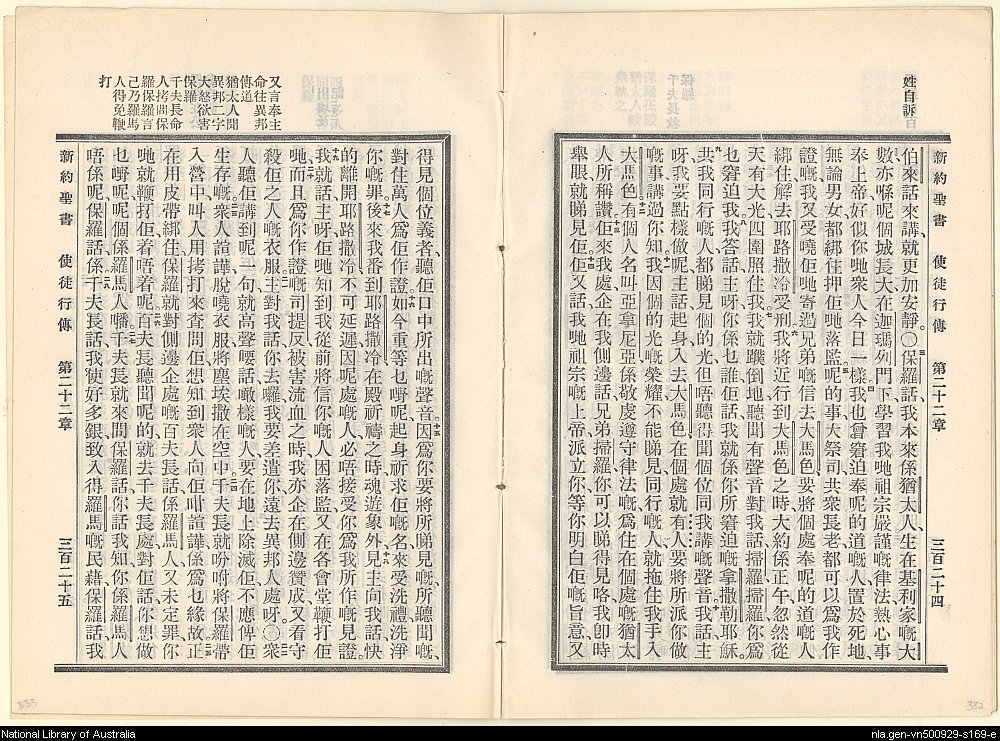 姓自訴百
新約聖書 使徒行傳 第二十二章 三百二十四
伯來話來講就更加安靜。㊂保羅話我本來係猶太人生在基利家嘅大
數亦喺呢個城長大在迦瑪列門下學習我哋祖宗嚴謹嘅律法熱心事
奉上帝好似你哋衆人今日一樣我也曾窘迫奉呢的道嘅人置於死地
無論男女都綁住押佢哋落監呢的事大祭司共衆長老都可以爲我作
證嘅我又受曉佢哋寄過兄弟嘅信去大馬色要將個處奉呢的道嘅人
綁住解去耶路撒冷受刑我將近行到大馬色之時大約係正午忽然從
天有大光四圍照住我我就蹼倒地聽聞有聲音對我話掃羅掃羅你爲
乜窘迫我我答話主呀你係乜誰佢話我就係你所窘迫嘅拿撒勒耶穌
共我同行嘅人都睇見個的光但唔聽得聞個位同我講嘅聲音我話主
呀我要點樣做呢主話起身入去大馬色在個處就有人要將所派你做
嘅事講過你知我因個的光嘅榮耀不能睇見同行嘅人就拖住我手入
大馬色有個人名叫亞拿尼亞係敬虔遵守律法嘅爲住在個處嘅猶太
人所稱讚佢來我處企在我側邊話兄弟掃羅你可以睇得見咯我卽時
舉眼就睇見佢佢又話我哋祖宗嘅上帝派立你等你明白佢嘅旨意又
332
又言奉主
命往異邦
傳道
猶太人聞
異邦二字
大怒欲害
保羅
千夫長命
人拷問保
羅保羅言
己乃羅馬
人得免鞭
打
得見個位義者聽佢口中所出嘅聲音因爲你要將所睇見嘅所聽聞嘅
對住萬人爲佢作證如今重等乜嘢呢起身祈求佢嘅名來受洗禮洗淨
你嘅罪後來我番到耶路撒冷在殿祈禱之時魂遊象外見主向我話快
的離開耶路撒冷不可延遲因呢處嘅人必唔接受你爲我所作嘅見證
我就話主呀佢哋知到我從前將信你嘅人困落監又在各會堂鞭打佢
哋而且爲你作證嘅司提反被害流血之時我亦企在側邊贊成又看守
殺佢之人嘅衣服主對我話你去囉我要差遣你遠去異邦人處呀㊂衆
人聽佢講到呢一句就高聲嗌話噉樣嘅人要在地上除滅佢不應俾佢
生存嘅衆人諠譁脫曉衣服將塵埃撒在空中千夫長就吩咐將保羅帶
入營中叫人用拷打來查問佢想知到衆人向佢咁諠譁係爲乜緣故正
在用皮帶綁住保羅就對側邊企處嘅百夫長話係羅馬人又未定罪你
哋就鞭打佢着唔着呢百夫長聽聞呢的就去千夫長處對佢話你想做
乜嘢呢呢個係羅馬人噃千夫長就來問保羅話你話我知你係羅馬人
唔係呢保羅話係千夫長話我使好多銀致入得羅馬嘅民藉保羅話我
新約聖書 使徒行傳 第二十二章 三百二十五
333
National Library of Australia
nla.gen-vn500929-s169-e